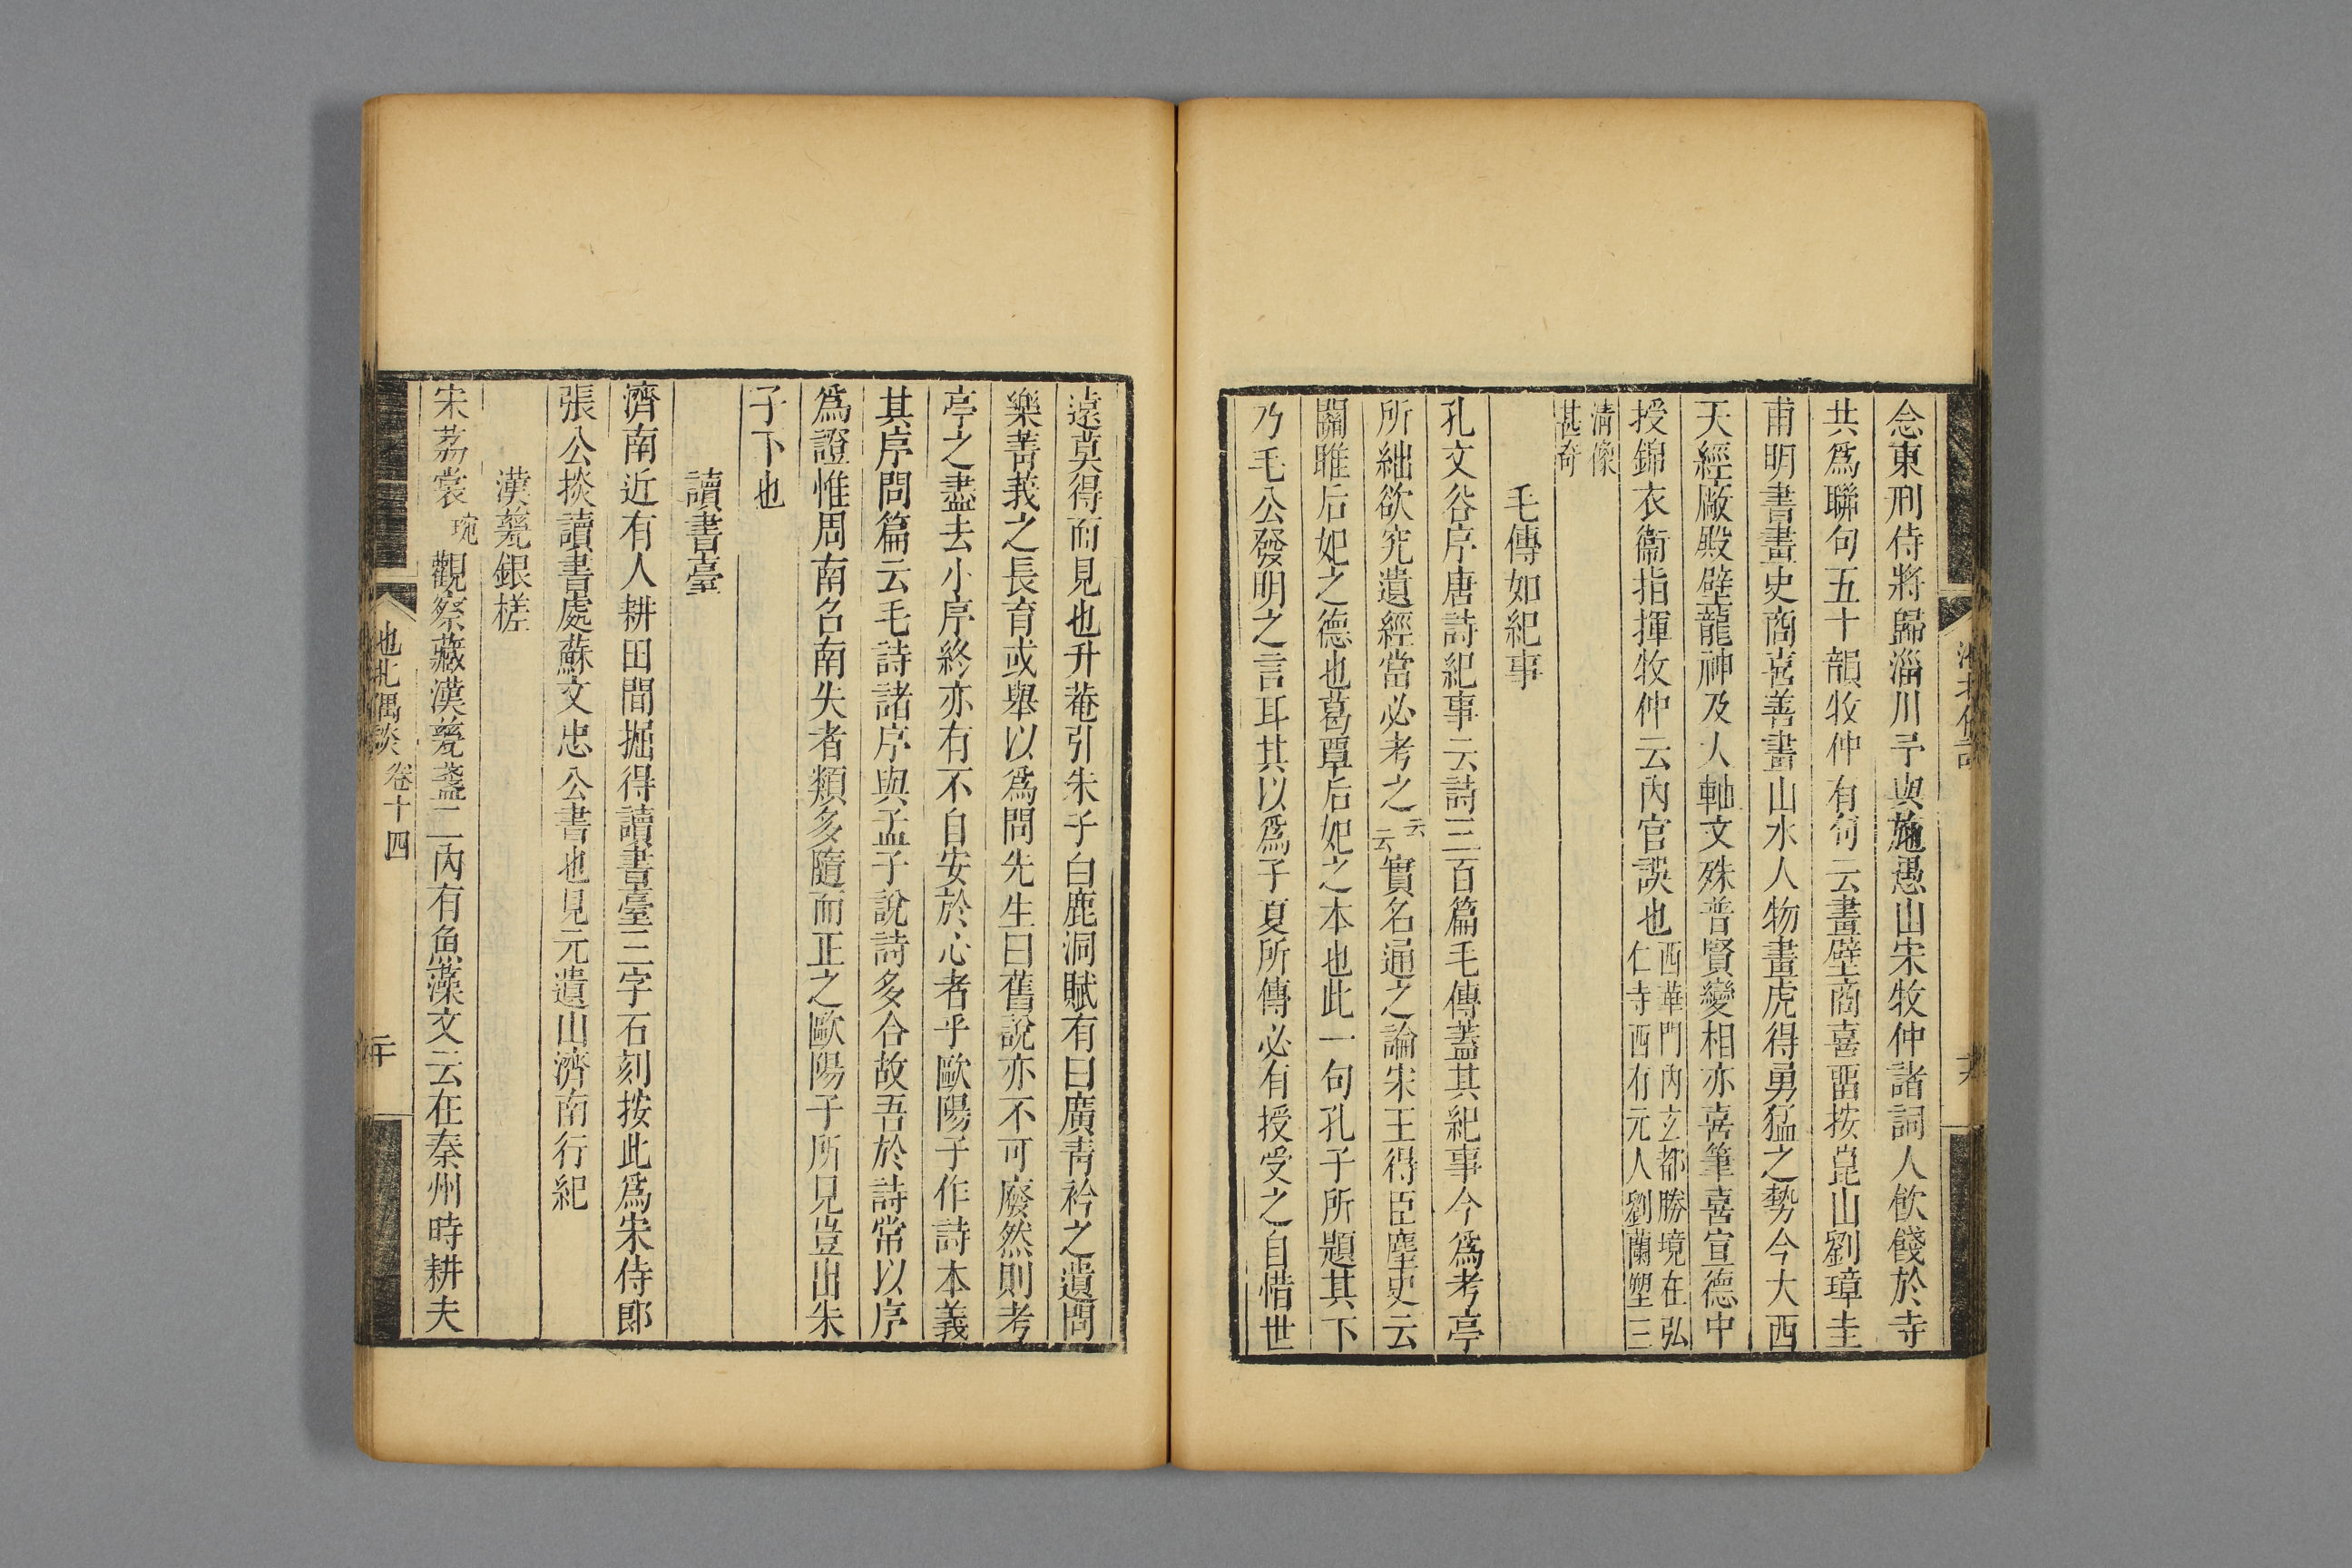 念東刑侍將歸淄川予與施愚山宋牧仲諸詞人飮餞於寺
共爲聯句五十韻牧仲有句云畫壁商喜畱按崑山劉璋圭
甫明書畫史商喜善畫山水人物畫虎得勇猛之勢今大西
天經廠殿壁龍神及大軸文殊普賢變相亦喜筆喜宣德中
授錦衣衞指揮牧仲云內官誤也西華門內玄都勝境在弘
仁寺西有元人劉蘭塑三
清像
甚奇
毛傳如紀事
孔文谷序唐詩紀事云詩三百篇毛傳蓋其紀事今爲考亭
所絀欲究遺經當必考之云云實名通之論宋王得臣麈史云
關雎后妃之德也葛覃后妃之本也此一句孔子所題其下
乃毛公發明之言耳其以爲子夏所傳必有授受之自惜世
遠莫得而見也升菴引朱子白鹿洞賦有曰廣靑衿之遺問
樂菁莪之長育或舉以爲問先生曰舊說亦不可廢然則考
亭之盡去小序終亦有不自安於心者乎歐陽子作詩本義
其序問篇云毛詩諸序與孟子說詩多合故吾於詩常以序
爲證惟周南召南失者類多隨而正之歐陽子所見豈出朱
子下也
讀書臺
濟南近有人耕田間掘得讀書臺三字石刻按此爲宋侍郎
張公掞讀書處蘇文忠公書也見元遺山濟南行紀
漢甆銀槎
宋荔裳琬觀察藏漢甆盞二內有魚藻文云在秦州時耕夫
池北偶談 卷十四 二十